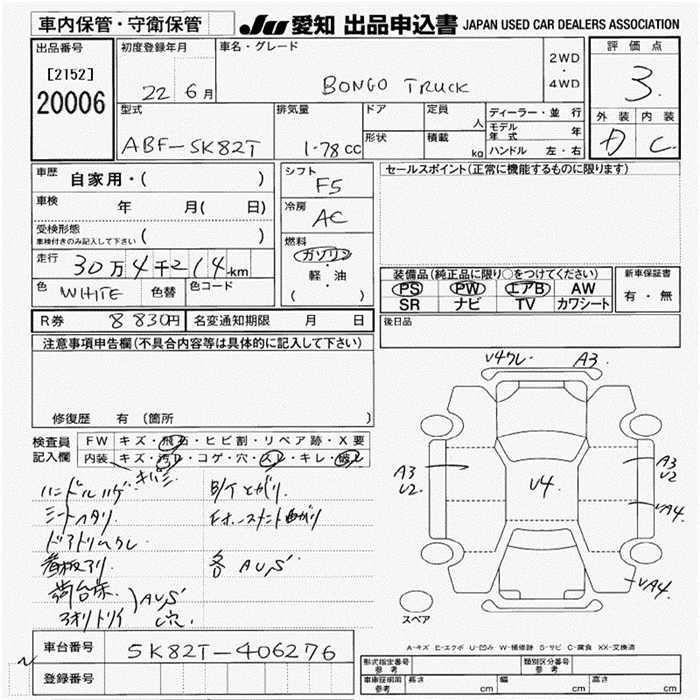 車内保管・守衛保管
JU 愛知 出品申込書 JAPAN USED CAR DEALERS ASSOCIATION
出品番号
[2152]
20006
初度登録年月
22 6月
車名・グレード
BONGO TRUCK
2WD
・
4WD
評価点
3.
外装 内装
D C
型式
ABF-SK82T
排気量
1.78 CC
ドア
形状
定員
人
積載
kg
ディーラー・並行
モデル年式 年
ハンドル 左・右
車歴
自家用・( )
車検
年 月( 日)
受検形態
車検付きのみ記入して下さい ( )
走行
30万4千214km
色
WHITE
色替
色コード
シフト
F5
冷房
AC
燃料
ガソリン
・
軽・油
( )
セールスポイント(正常に機能するものに限ります)
装備品(純正品に限り○をつけてください)
PS PW エアB AW
SR ナビ TV カワシート
新車保証書
有・無
R券
8830円
名変通知期限 月 日
後日品
注意事項申告欄(不具合内容等は具体的に記入して下さい)
修復歴 有 (箇所 )
検査員
記入欄
FW キズ・飛石・ヒビ割・リペア跡・X要
内装 キズ・汚れ・コゲ・穴・スレ・キレ・破レ
キバミ
ハンドルハゲ
シートヘタリ
ドアトリムクレ
看板アリ
荷台床
アオリトリイ
AUS
穴
各 AUS
V4クレ A3
A3
U2
V4
A3
U2
VA4
VA4
スペア
A-キズ E-エクボ U-凹み W-補修跡 S-サビ C-腐食 XX-交換済
車台番号
SK82T-406276
登録番号
形式指定番号
参考
類別区分番号
参考
車庫証明用
参考
長さ cm 幅 cm 高さ cm